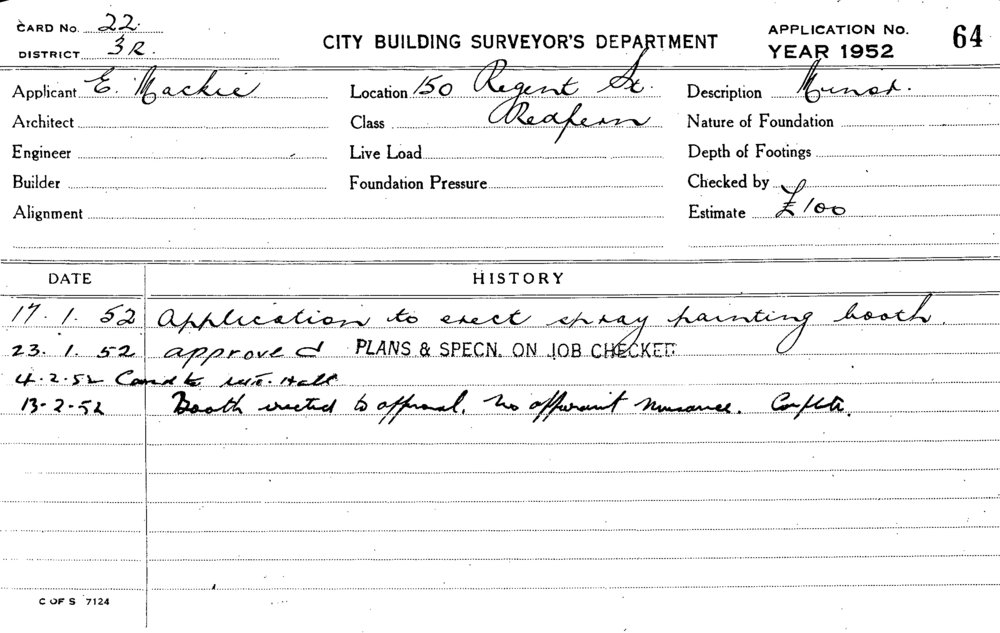 CARD No. 22.
DISTRICT 3R.
CITY BUILDING SURVEYOR'S DEPARTMENT
APPLICATION No. 64
YEAR 1952
Applicant E. Mackie
Location 150 Regent St.
Description Minor.
Architect
Class Redfern
Nature of Foundation
Engineer
Live Load
Depth of Footings
Builder
Foundation Pressure
Checked by
Alignment
Estimate £100
DATE HISTORY
17. 1. 52 Application to erect spray painting booth.
23. 1. 52 approved PLANS & SPECN. ON JOB CHECKED
4-2-52 Card to Hall
13-2-52 Booth erected to approval. No apparent nuisance. Complete.
C OF S 7124